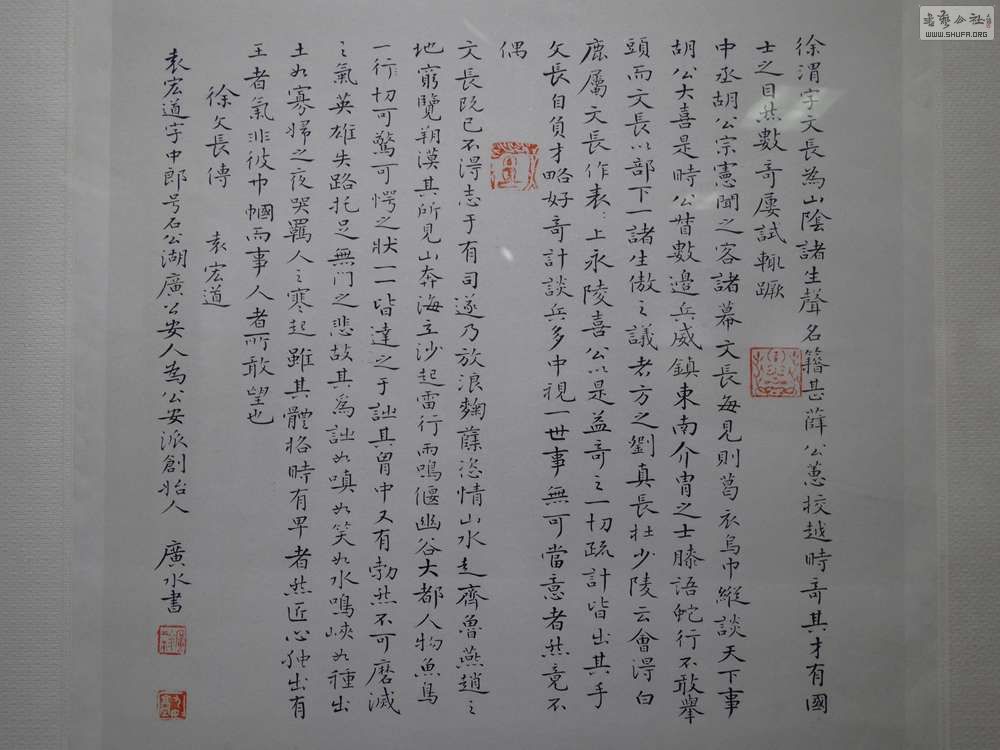 徐渭字文長為山陰諸生聲名籍甚薛公蕙挍越時奇其才有國
士之目然數奇屢試輒蹶
中丞胡公宗憲聞之客諸幕文長每見則葛衣烏巾縱談天下事
胡公大喜是時公督數邊兵威鎮東南介冑之士膝語蛇行不敢舉
頭而文長以部下一諸生傲之議者方之劉真長杜少陵云會得白
鹿屬文長作表：上永陵喜公以是益奇之一切疏計皆出其手
文長自負才略好奇計談兵多中視一世事無可當意者然竟不
偶
文長既已不得志于有司遂乃放浪麴蘖恣情山水走齊魯燕趙之
地窮覽朔漠其所見山奔海立沙起雷行雨鳴偃幽谷大都人物魚鳥
一切可驚可愕之狀一一皆達之于詩其胷中又有勃然不可磨滅
之氣英雄失路托足無门之悲故其為詩如嗔如笑如水鳴峽如種出
土如寡婦之夜哭羈人之寒起雖其體格時有卑者然匠心独出有
王者氣非彼巾幗而事人者所敢望也
徐文長傳 袁宏道
袁宏道字中郎号石公湖廣公安人為公安派創始人 廣水書
書藝公社
WWW.SHUFA.ORG